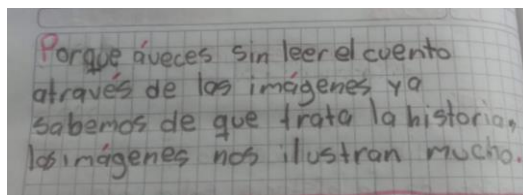 Porque áveces sin leer el cuento
através de las imágenes ya
sabemos de que trata la historia,
las imágenes nos ilustran mucho.